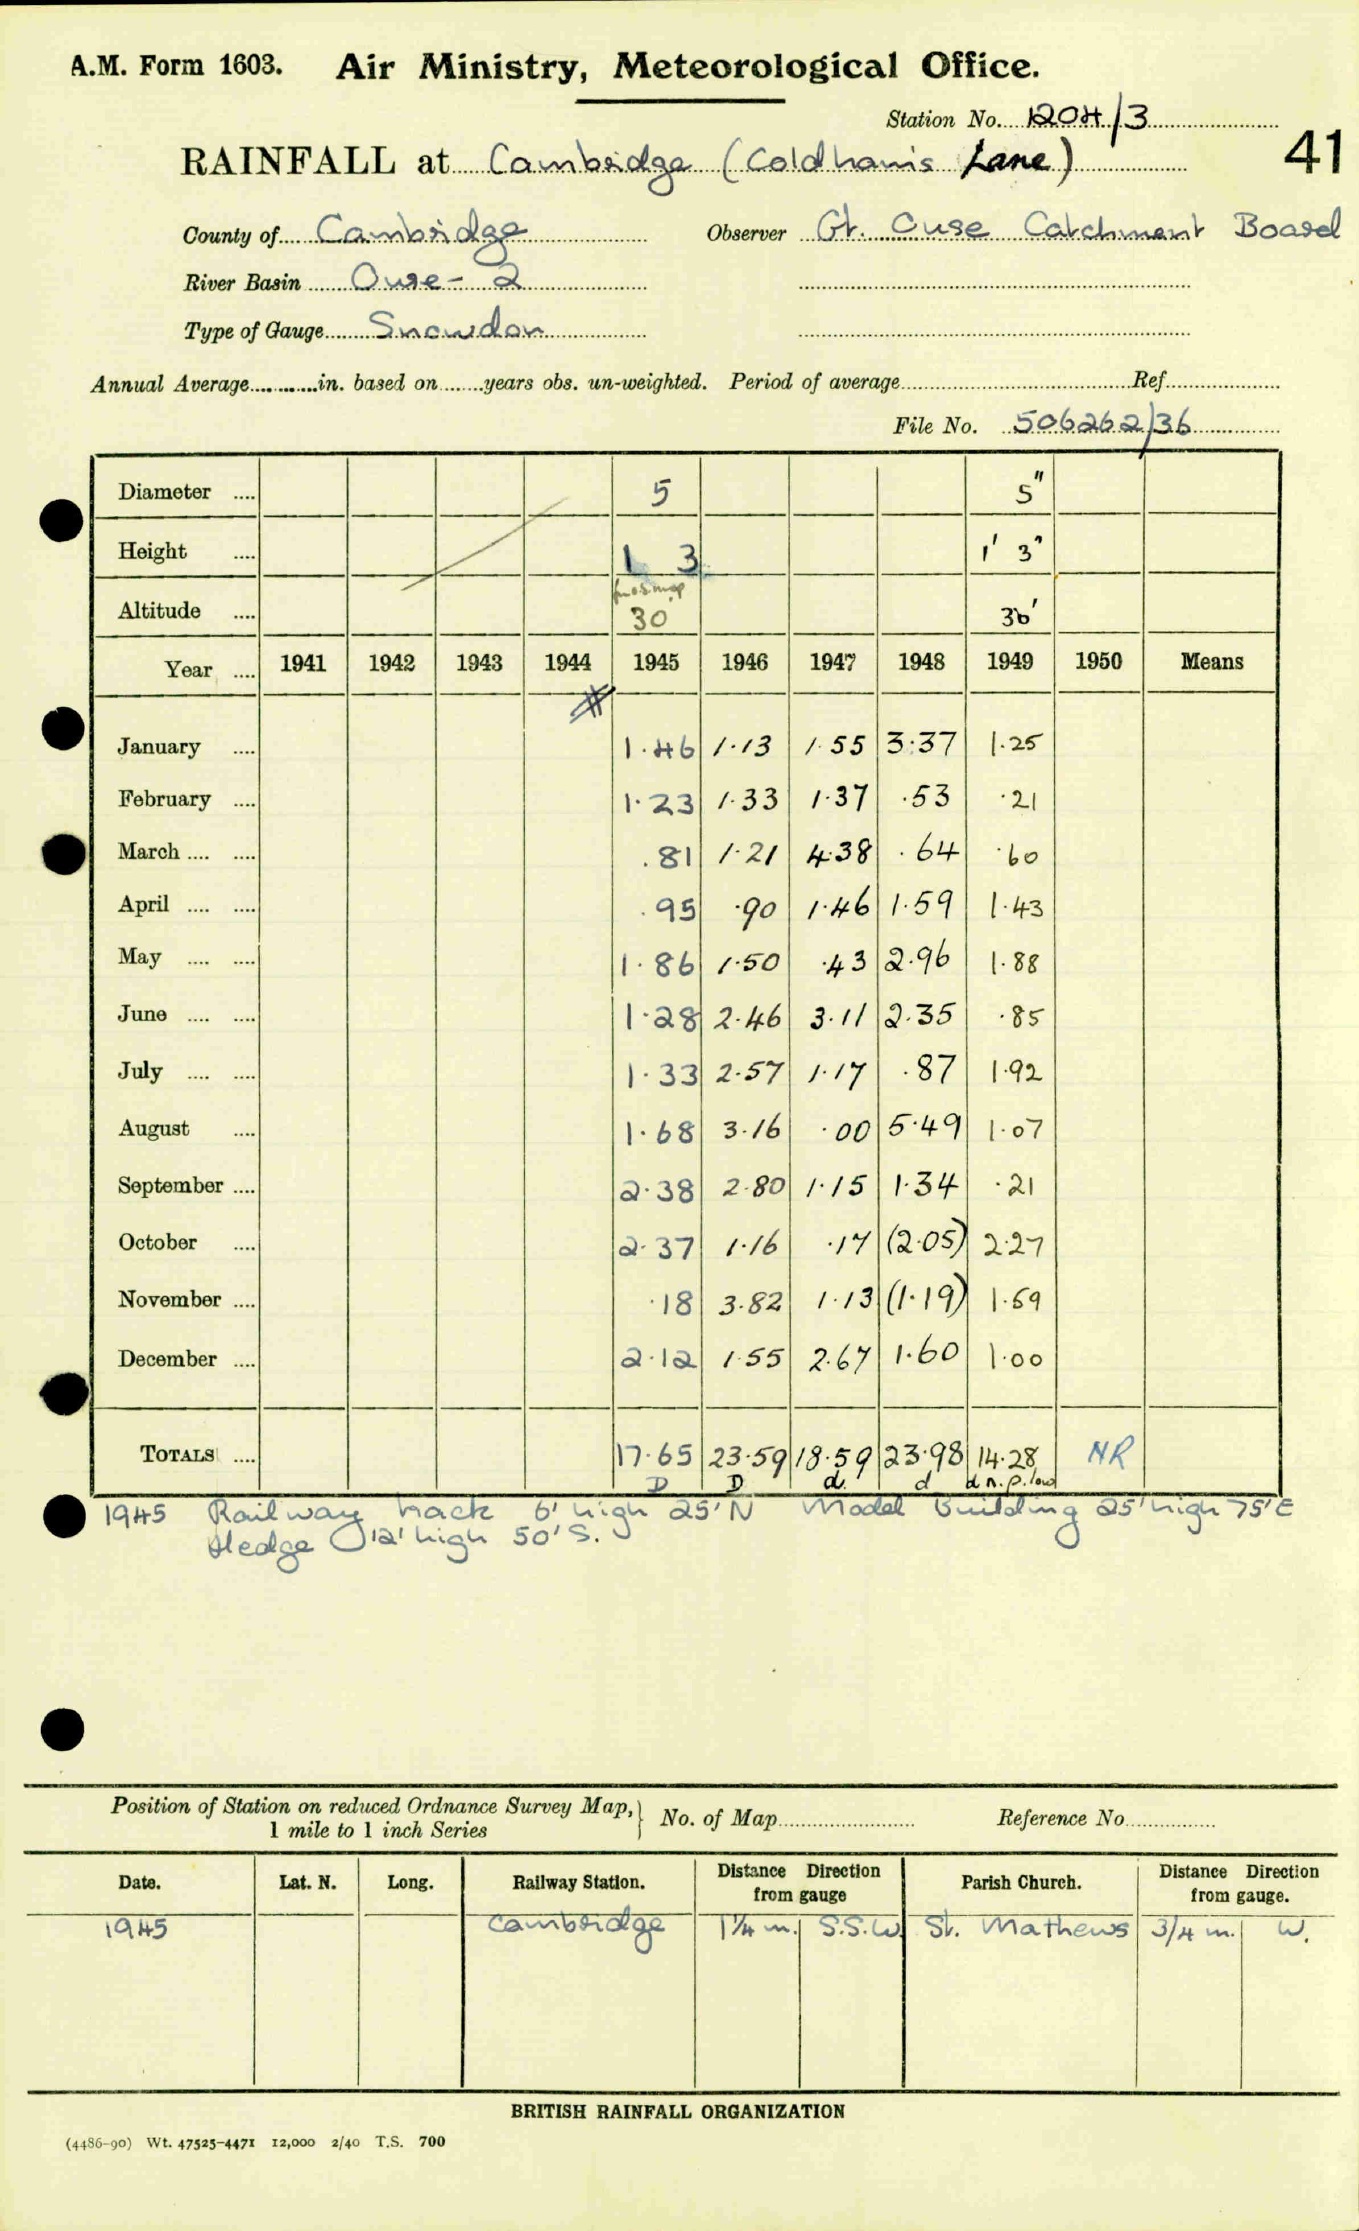 A.M. Form 1603. Air Ministry, Meteorological Office.
Station No. 1204/3
41
RAINFALL at Cambridge (Coldham's Lane)
County of Cambridge Observer Gt. Ouse Catchment Board
River Basin Ouse - 2
Type of Gauge Snowdon
Annual Average in. based on years obs. un-weighted. Period of average Ref.
File No. 506262/36
Diameter 5 5"
Height 1 3 1' 3"
Altitude 30 30'
Year 1941 1942 1943 1944 1945 1946 1947 1948 1949 1950 Means
January 1.46 1.13 1.55 3.37 1.25
February 1.23 1.33 1.37 .53 .21
March .81 1.21 4.38 .64 .60
April .95 .90 1.46 1.59 1.43
May 1.86 1.50 .43 2.96 1.88
June 1.28 2.46 3.11 2.35 .85
July 1.33 2.57 1.17 .87 1.92
August 1.68 3.16 .00 5.49 1.07
September 2.38 2.80 1.15 1.34 .21
October 2.37 1.16 .17 (2.05) 2.27
November .18 3.82 1.13 (1.19) 1.59
December 2.12 1.55 2.67 1.60 1.00
TOTALS 17.65 23.59 18.59 23.98 14.28 NR
D D d d d n.p. low
1945 Railway track 6' high 25' N Model Building 25' high 75' E
Hedge 12' high 50' S.
Position of Station on reduced Ordnance Survey Map, } No. of Map Reference No.
1 mile to 1 inch Series
Date. Lat. N. Long. Railway Station. Distance Direction from gauge Parish Church. Distance Direction from gauge.
1945 Cambridge 1¼ m. S.S.W. St. Mathews 3/4 m. W.
BRITISH RAINFALL ORGANIZATION
(4486-90) Wt. 47525-4471 12,000 2/40 T.S. 700